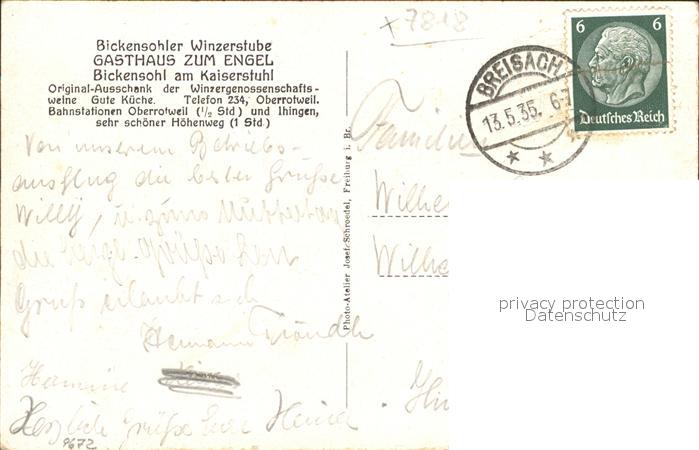 + 7818
Bickensohler Winzerstube
GASTHAUS ZUM ENGEL
Bickensohl am Kaiserstuhl
Original-Ausschank der Winzergenossenschafts-
weine Gute Küche. Telefon 234, Oberrotweil.
Bahnstationen Oberrotweil (1/2 Std) und Ihingen,
sehr schöner Höhenweg (1 Std.)
Von unserem Betriebs-
ausflug die besten Grüße
Willy, u. zum Muttertag
die
Gruß erlaubt sich
Hermann
Hermine
Herzliche Grüße Eure
9672
Photo-Atelier Josef Schroedel, Freiburg i. Br.
BREISACH
13.5.35. 6-7
6 6
Deutsches Reich
Familie
Wilhe
Wilhe
privacy protection
Datenschutz